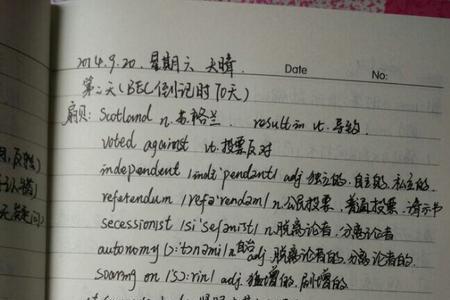 2014.9.20. 星期六 大晴. Date No:
第二天(BEC倒记时70天)
扇贝: Scotland n.苏格兰. result in vt.导致.
voted against vt.投票反对
independent /indi'pendant/ adj 独立的.自主的.私立的.
referendum /refə'rendəm/ n.公民投票.普遍投票.请示书
secessionist /si'seʃənist/ n.脱离论者.分离论者
autonomy /ɔ:'tɔnəmi/ n自治 adj.脱离论者的.分离论者的.
soaring on /sɔ:riŋ/ adj.猛增的.剧增的